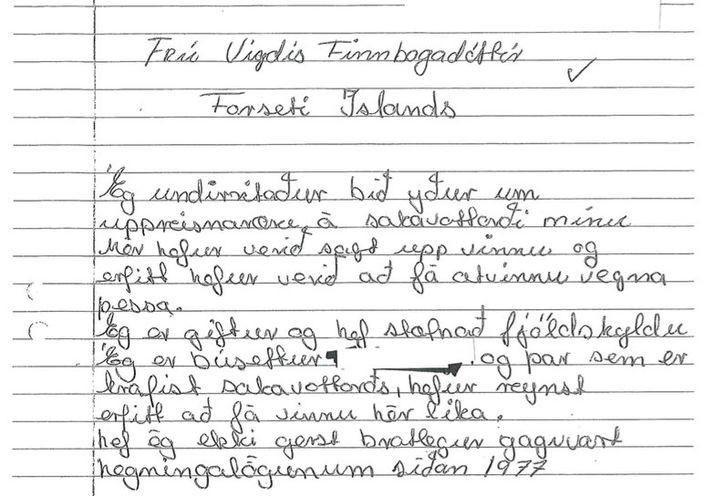 Frú Vigdís Finnbogadóttir
Forseti Íslands
Ég undirritaður bið yður um
uppreisnarære, á sakavottorði mínu
mér hefur verið sagt upp vinnu og
erfitt hefur verið að fá atvinnu vegna
þessa.
Ég er giftur og hef stofnað fjöldskyldu
Ég er búsettur og þar sem er
krafist sakavottorðs, hefur reynst
erfitt að fá vinnu hér líka.
hef ég ekki gerst brotlegur gagnvart
hegningalögunum síðan 1977